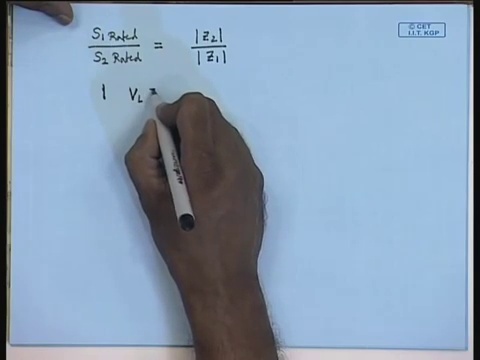 © CET
I.I.T. KGP
S₁ Rated / S₂ Rated = |Z₂| / |Z₁|
1 V_L =